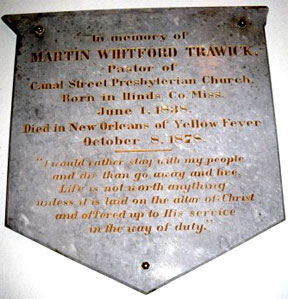 In memory of
MARTIN WHITFORD TRAWICK.
Pastor of
Canal Street Presbyterian Church,
Born in Hinds Co. Miss.
June 1, 1838.
Died in New Orleans of Yellow Fever
October 8, 1878.
"I would rather stay with my people
and die than go away and live.
Life is not worth anything
unless it is laid on the altar of Christ
and offered up to His service
in the way of duty."